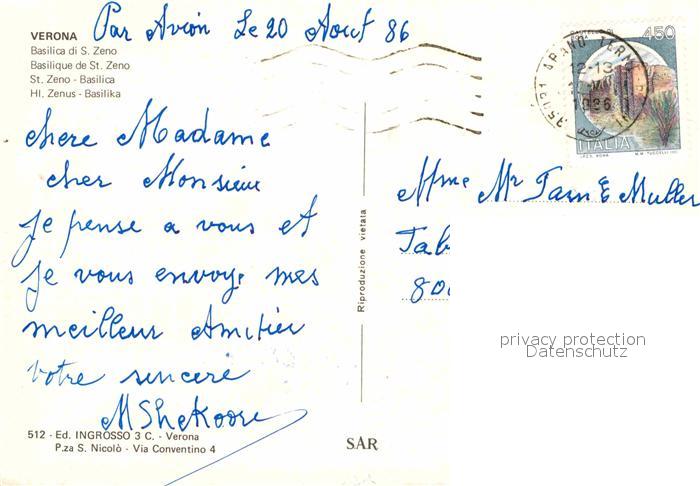 VERONA
Basilica di S. Zeno
Basilique de St. Zeno
St. Zeno - Basilica
Hl. Zenus - Basilika
Par Avion Le 20 Aout 86
chere Madame
cher Monsieur
Je pense a vous et
Je vous envoye mes
meilleur Amitier
votre sincere
MShekoore
512 - Ed. INGROSSO 3 C. - Verona
P.za S. Nicolò - Via Conventino 4
Riproduzione vietata
SAR
450
ITALIA
I.P.Z.S. ROMA
35031 ABANO TERME
1986
Mme Mr Tarn E Muller
Tab
800
privacy protection
Datenschutz